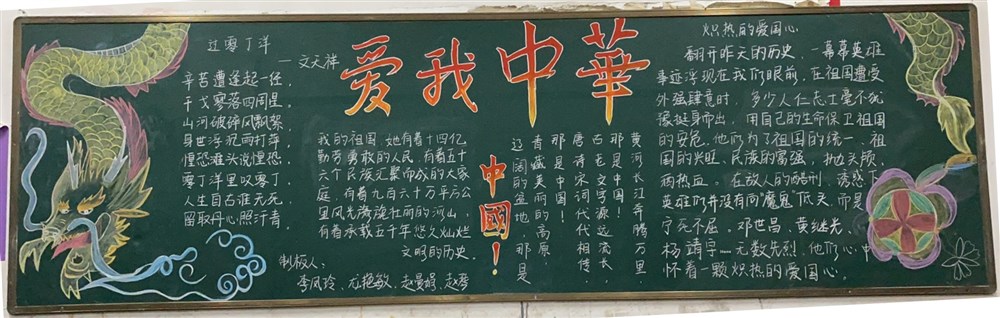 过零丁洋
—文天祥
辛苦遭逢起一经,
干戈寥落四周星。
山河破碎风飘絮,
身世浮沉雨打萍。
惶恐滩头说惶恐,
零丁洋里叹零丁。
人生自古谁无死,
留取丹心照汗青。
爱我中華
我的祖国,她有着十四亿
勤劳勇敢的人民,有着五十
六个民族汇聚而成的大家
庭,有着九百六十万平方公
里风光旖旎壮丽的河山,
有着承载五千年悠久灿烂
文明的历史。
制板人:
李凤玲、亢艳敏、赵曼娟、赵琴
中國!
黄河长江奔腾万里
那是中国!
古老文字源远流长,
唐诗宋词代代相传
那是中国!
香蕴美丽的高原
辽阔的圣地,那是
炽热的爱国心
翻开昨天的历史,一幕幕英雄
事迹浮现在我们眼前,在祖国遭受
外强肆意时,多少人仁志士毫不犹
豫挺身而出,用自己的生命保卫祖国
的安危,他们为了祖国的统一、祖
国的兴旺、民族的富强,抛头颅,
洒热血。在敌人的酷刑、诱惑下
英雄们并没有向魔鬼低头,而是
宁死不屈。邓世昌、黄继光、
杨靖宇……无数先烈,他们心中
怀着一颗炽热的爱国心。